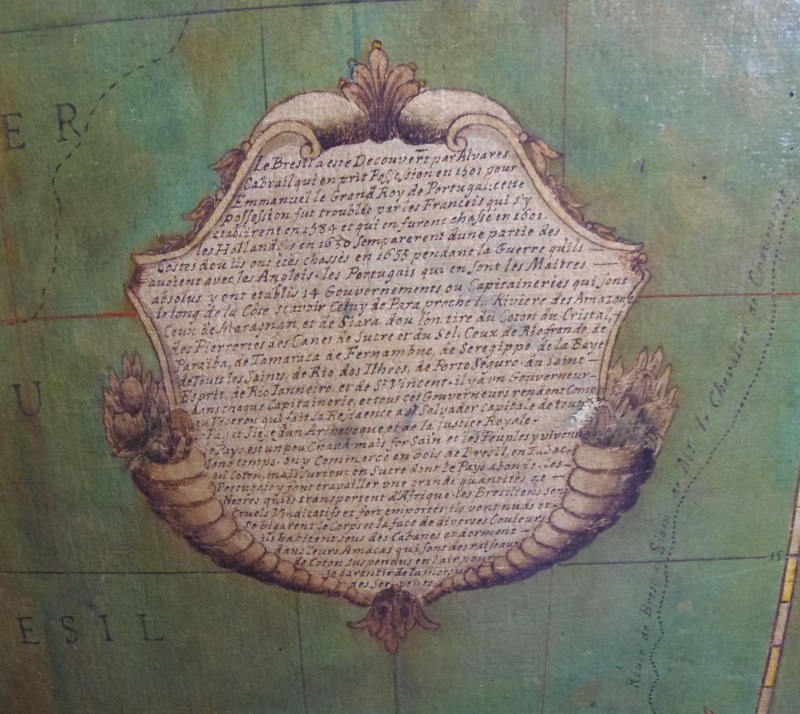 ER
U
ESIL
Le Bresil a esté Decouvert par Alvares
Cabrail qui en prit Possession en 1501 pour
Emmanuel le Grand Roy de Portugal; cette
possession fut troublée par les Francois qui s'y
etablirent en 1584 et qui en furent chassé en 1601.
les Hollandois en 1630 semparerent dune partie des
Costes dou ils ont étés chassés en 1655 pendant la Guerre quils
avoient avec les Anglois. les Portugais qui en sont les Maitres
absolus y ont etablis 14 Gouvernements ou Capitaineries qui sont
le long de la Côte scavoir Celuy de Para proche l. Riviere des Amazone
Ceux de Maragnan et de Siara dou lon tire du Coton du Cristal,
des Pierreries des Canes de Sucre et du Sel. Ceux de Riofrande, de
Paraiba, de Tamaraca de Fernambuc, de Seregippe de la Baye
de Touts les Saints, de Rio dos Ilheos, de Porto Seguro, du Saint
Esprit, de Rio Ianneiro, et de St Vincent. il yà un Gouverneur
dans chaque Capitainerie, et tous ces Gouverneurs rendent Compte
au Viceroy qui fait sa Residence a St Salvador Capitale de tout
Siege dun Archeveque, et de la Justice Royale.
Pays est un peu Chaud mais for Sain et les Peuples y vivent
long temps. on y Commerce en bois de Bresil, en Tabac
en Coton, mais surtout en Sucre dont le Pays abonde. les
Portugais y font travailler une grande quantités de
Negres quils transportent d'Afrique. les Bresiliens son
Cruels Vindicatifs et fort emportés ils vont nuds et
se bigarent le Corps et la face de diverses Couleurs
ils habitent sous des Cabanes et dorment
dans leurs Amacas qui sont des raiseaux
de Coton suspendus en lair pour
se garentir de la morsure
des Serpents
Route de Brest a Siam par Mr le Chevalier de Chaumont
15